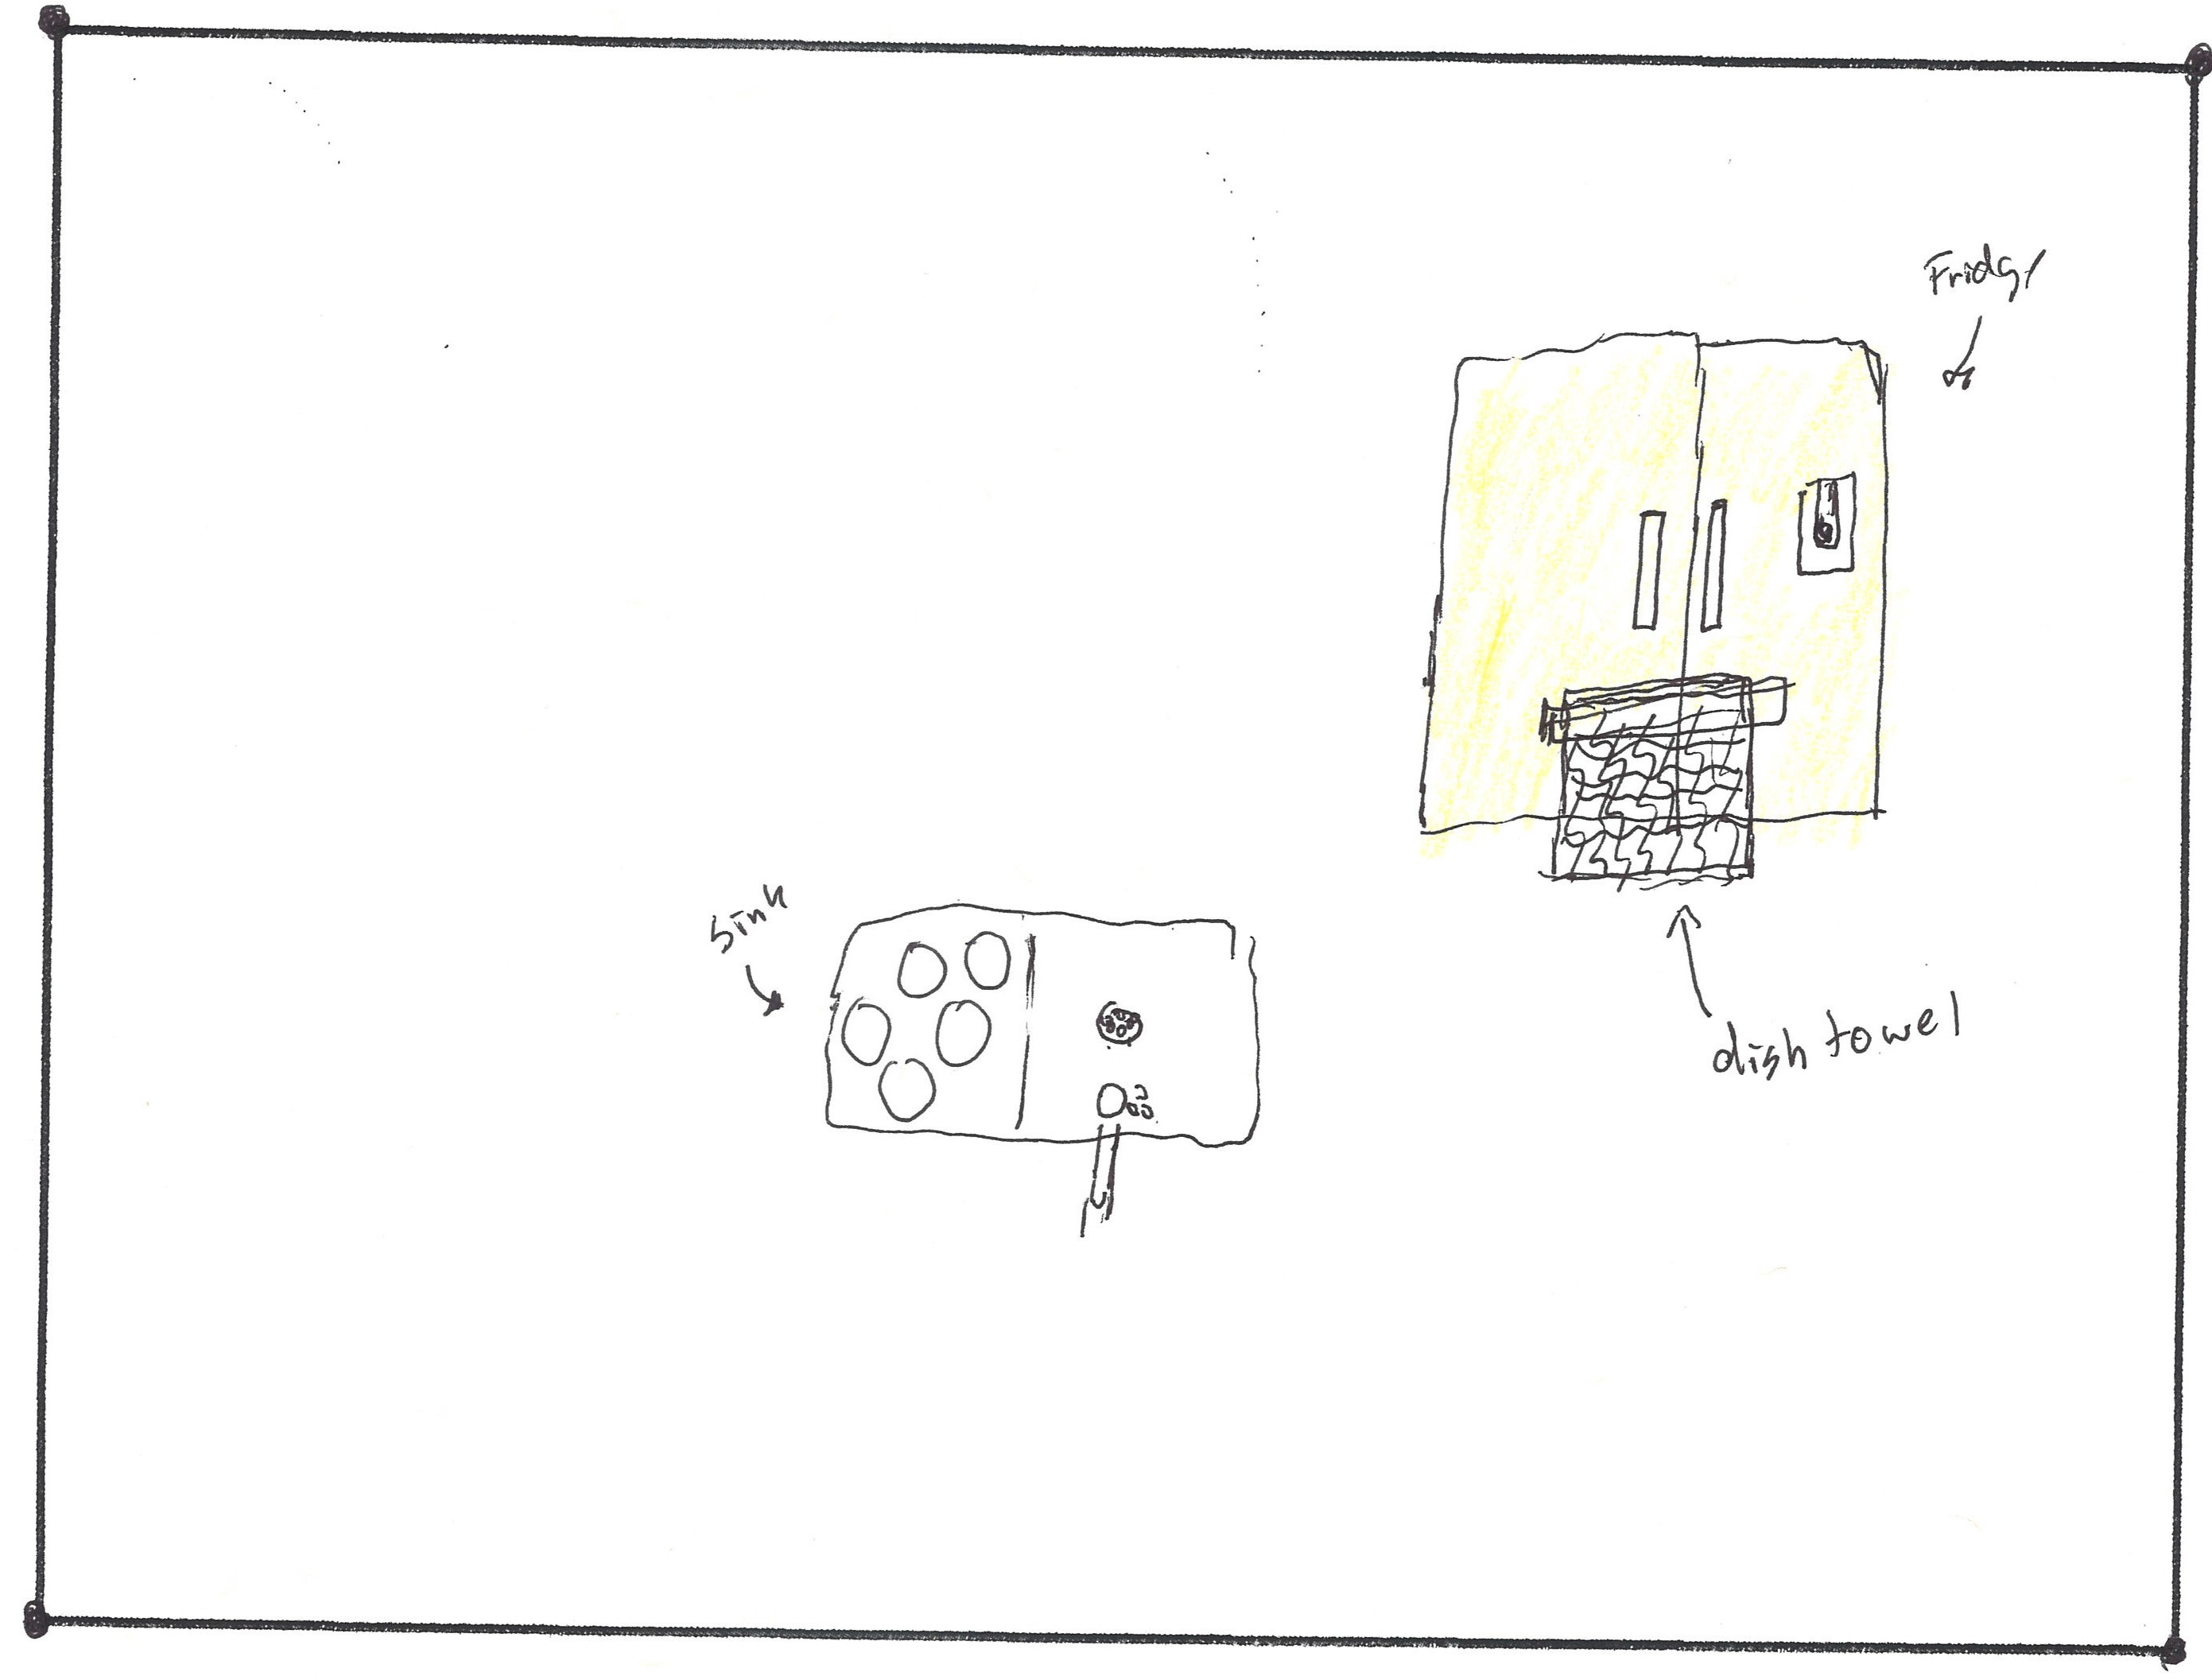 Fridge
Sink
dish towel